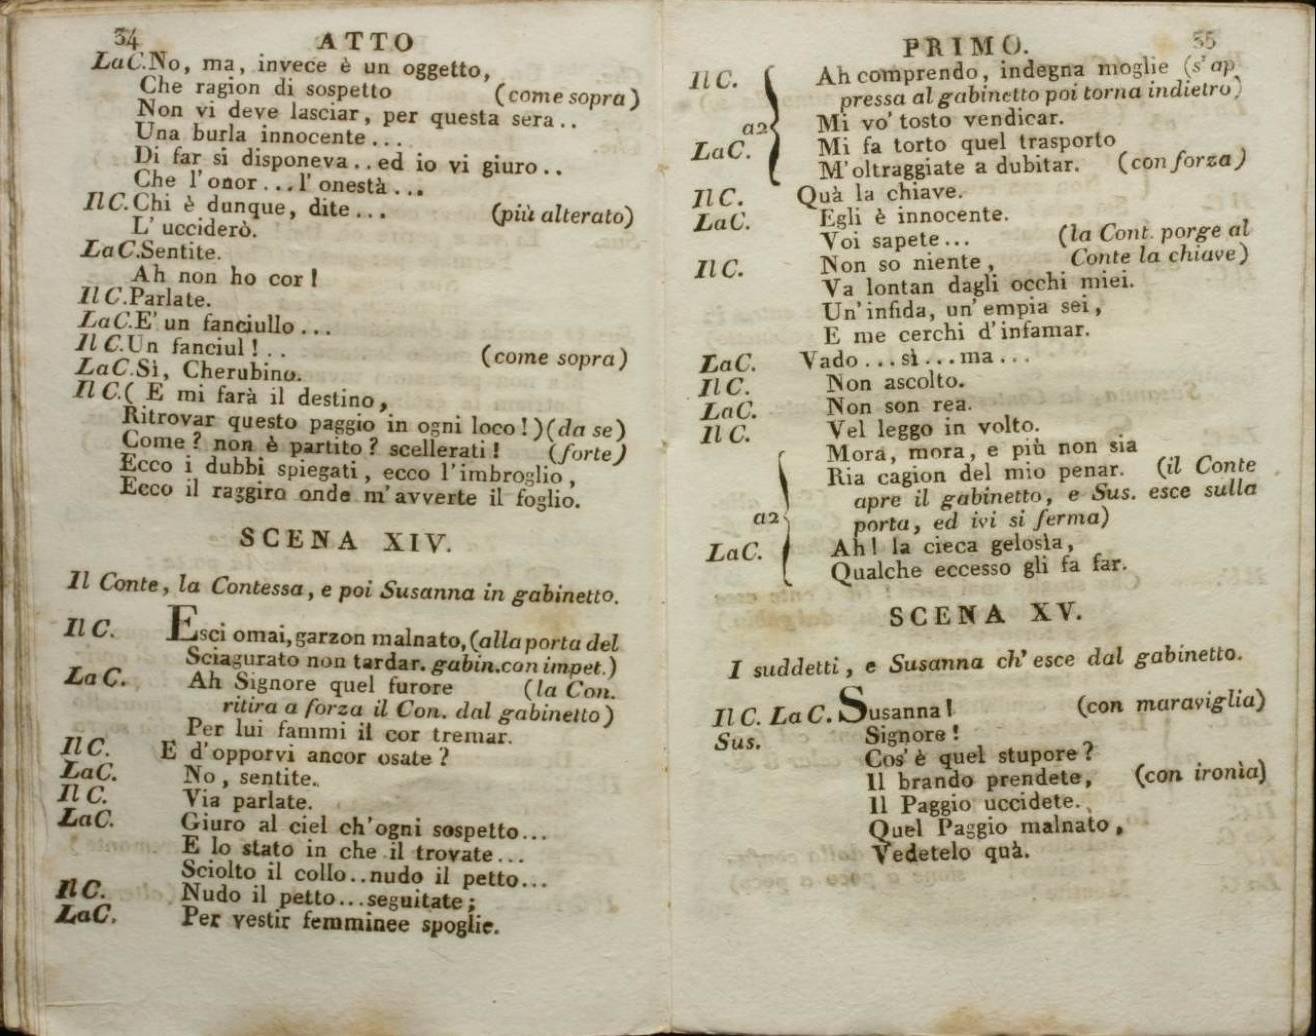 34 ATTO
La C. No, ma, invece è un oggetto,
Che ragion di sospetto (come sopra)
Non vi deve lasciar, per questa sera..
Una burla innocente...
Di far si disponeva.. ed io vi giuro..
Che l'onor... l'onestà...
Il C. Chi è dunque, dite... (più alterato)
L'ucciderò.
La C. Sentite.
Ah non ho cor!
Il C. Parlate.
La C. E' un fanciullo...
Il C. Un fanciul!.. (come sopra)
La C. Sì, Cherubino.
Il C. ( E mi farà il destino,
Ritrovar questo paggio in ogni loco!) (da se)
Come? non è partito? scellerati! (forte)
Ecco i dubbi spiegati, ecco l'imbroglio,
Ecco il raggiro onde m'avverte il foglio.
SCENA XIV.
Il Conte, la Contessa, e poi Susanna in gabinetto.
Il C. Esci omai, garzon malnato, (alla porta del
Sciagurato non tardar. gabin. con impet.)
La C. Ah Signore quel furore (la Con.
ritira a forza il Con. dal gabinetto)
Per lui fammi il cor tremar.
Il C. E d'opporvi ancor osate?
La C. No, sentite.
Il C. Via parlate.
La C. Giuro al ciel ch'ogni sospetto...
E lo stato in che il trovate...
Sciolto il collo.. nudo il petto...
Il C. Nudo il petto... seguitate;
La C. Per vestir femminee spoglie.
PRIMO. 35
Il C. Ah comprendo, indegna moglie (s'ap
pressa al gabinetto poi torna indietro)
a2 Mi vo' tosto vendicar.
La C. Mi fa torto quel trasporto
M'oltraggiate a dubitar. (con forza)
Il C. Quà la chiave.
La C. Egli è innocente.
Voi sapete... (la Cont. porge al
Il C. Non so niente, Conte la chiave)
Va lontan dagli occhi miei.
Un'infida, un'empia sei,
E me cerchi d'infamar.
La C. Vado... sì... ma...
Il C. Non ascolto.
La C. Non son rea.
Il C. Vel leggo in volto.
Mora, mora, e più non sia
Ria cagion del mio penar. (il Conte
apre il gabinetto, e Sus. esce sulla
a2 porta, ed ivi si ferma)
La C. Ah! la cieca gelosìa,
Qualche eccesso gli fa far.
SCENA XV.
I suddetti, e Susanna ch'esce dal gabinetto.
Il C. La C. Susanna! (con maraviglia)
Sus. Signore!
Cos'è quel stupore?
Il brando prendete, (con ironìa)
Il Paggio uccidete.
Quel Paggio malnato,
Vedetelo quà.